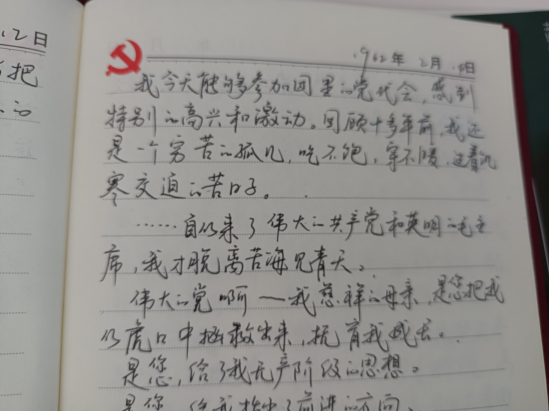 2日
把
的
1962年2月 日
我今天能够参加团里的党代会,感到
特别的高兴和激动。回顾十多年前,我还
是一个穷苦的孤儿,吃不饱,穿不暖,过着饥
寒交迫的苦日子。
……自从来了伟大的共产党和英明的毛主
席,我才脱离苦海见青天。
伟大的党啊——我慈祥的母亲,是您把我
从虎口中拯救出来,抚育我成长。
是您,给了我无产阶级的思想。
是您,给我指出了前进的方向。